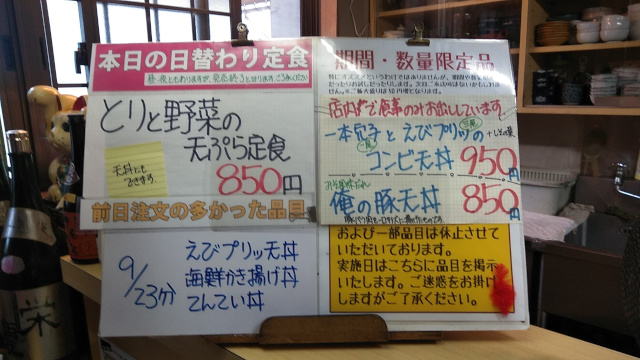 本日の日替わり定食
昼・夜ともありますが、完売終了となります。ご了承ください
とりと野菜の
天ぷら定食
天丼にも
できます。
850円
前日注文の多かった品目
9/23分
えびプリッ天丼
海鮮かき揚げ丼
てんてい丼
期間・数量限定品
店内で食事のみお出ししています。
一本穴子とえびプリッの
コンビ天丼 950円
俺の豚天丼 850円
および一部品目は休止させて
いただいております。
実施日はこちらに品目を掲示
いたします。ご迷惑をお掛け
しますがご了承ください。
栄